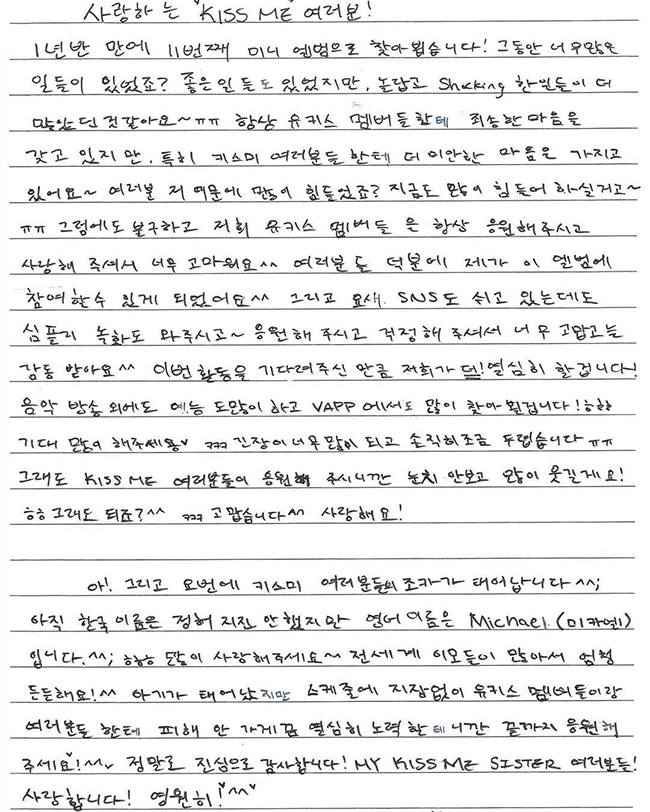 사랑하는 "KISS ME" 여러분!
1년반 만에 11번째 미니 앨범으로 찾아 뵙습니다! 그동안 너무많은
일들이 있었죠? 좋은일들도 있었지만, 놀랍고 Shocking 한일들이 더
많았던것같아요~ㅠㅠ 항상 유키스 멤버들한테 죄송한마음을
갖고 있지만, 특히 키스미 여러분들한테 더 미안한 마음을 가지고
있어요~ 여러분 저 때문에 많이 힘들었죠? 지금도 많이 힘들어 하실거고~
ㅠㅠ 그럼에도 불구하고 저희 유키스 멤버들은 항상 응원해주시고
사랑해 주셔서 너무 고마워요^^ 여러분들 덕분에 제가 이 앨범에
참여할수 있게 되었어요^^ 그리고 요새 SNS도 쉬고 있는데도
심플리 녹화도 와주시고~ 응원해 주시고 걱정해 주셔서 너무 고맙고
감동 받아요^^ 이번활동을 기다려주신 만큼 저희가 더!열심히 할겁니다!
음악 방송 외에도 예능도많이 하고 VAPP에서도 많이 찾아뵐겁니다!ㅎㅎ
기대 많이 해주세용♥ ㅋㅋㅋ 긴장이너무많이 되고 솔직히조금 두렵습니다ㅠㅠ
그래도 KISS ME 여러분들이 응원해 주시니깐 눈치 안보고 많이 웃길게요!
ㅎㅎ그래도 되죠?^^ ㅋㅋㅋ 고맙습니다^^ 사랑해요!
아! 그리고 요번에 키스미 여러분들의 조카가 태어납니다^^;
아직 한국이름은 정해 지진 안했지만 영어이름은 Michael (미카엘)
입니다.^^; ㅎㅎㅎ 많이 사랑해주세요~ 전세계 이모들이 많아서 엄청
든든해요!^^ 아기가 태어났지만 스케줄에 지장없이 유키스 멤버들이랑
여러분들 한테 피해 안 가게끔 열심히 노력할테니깐 끝까지 응원해
주세요♥!^^ 정말로 진심으로 감사합니다! MY KISS ME SISTER 여러분들!
사랑합니다! 영원히!♥^^